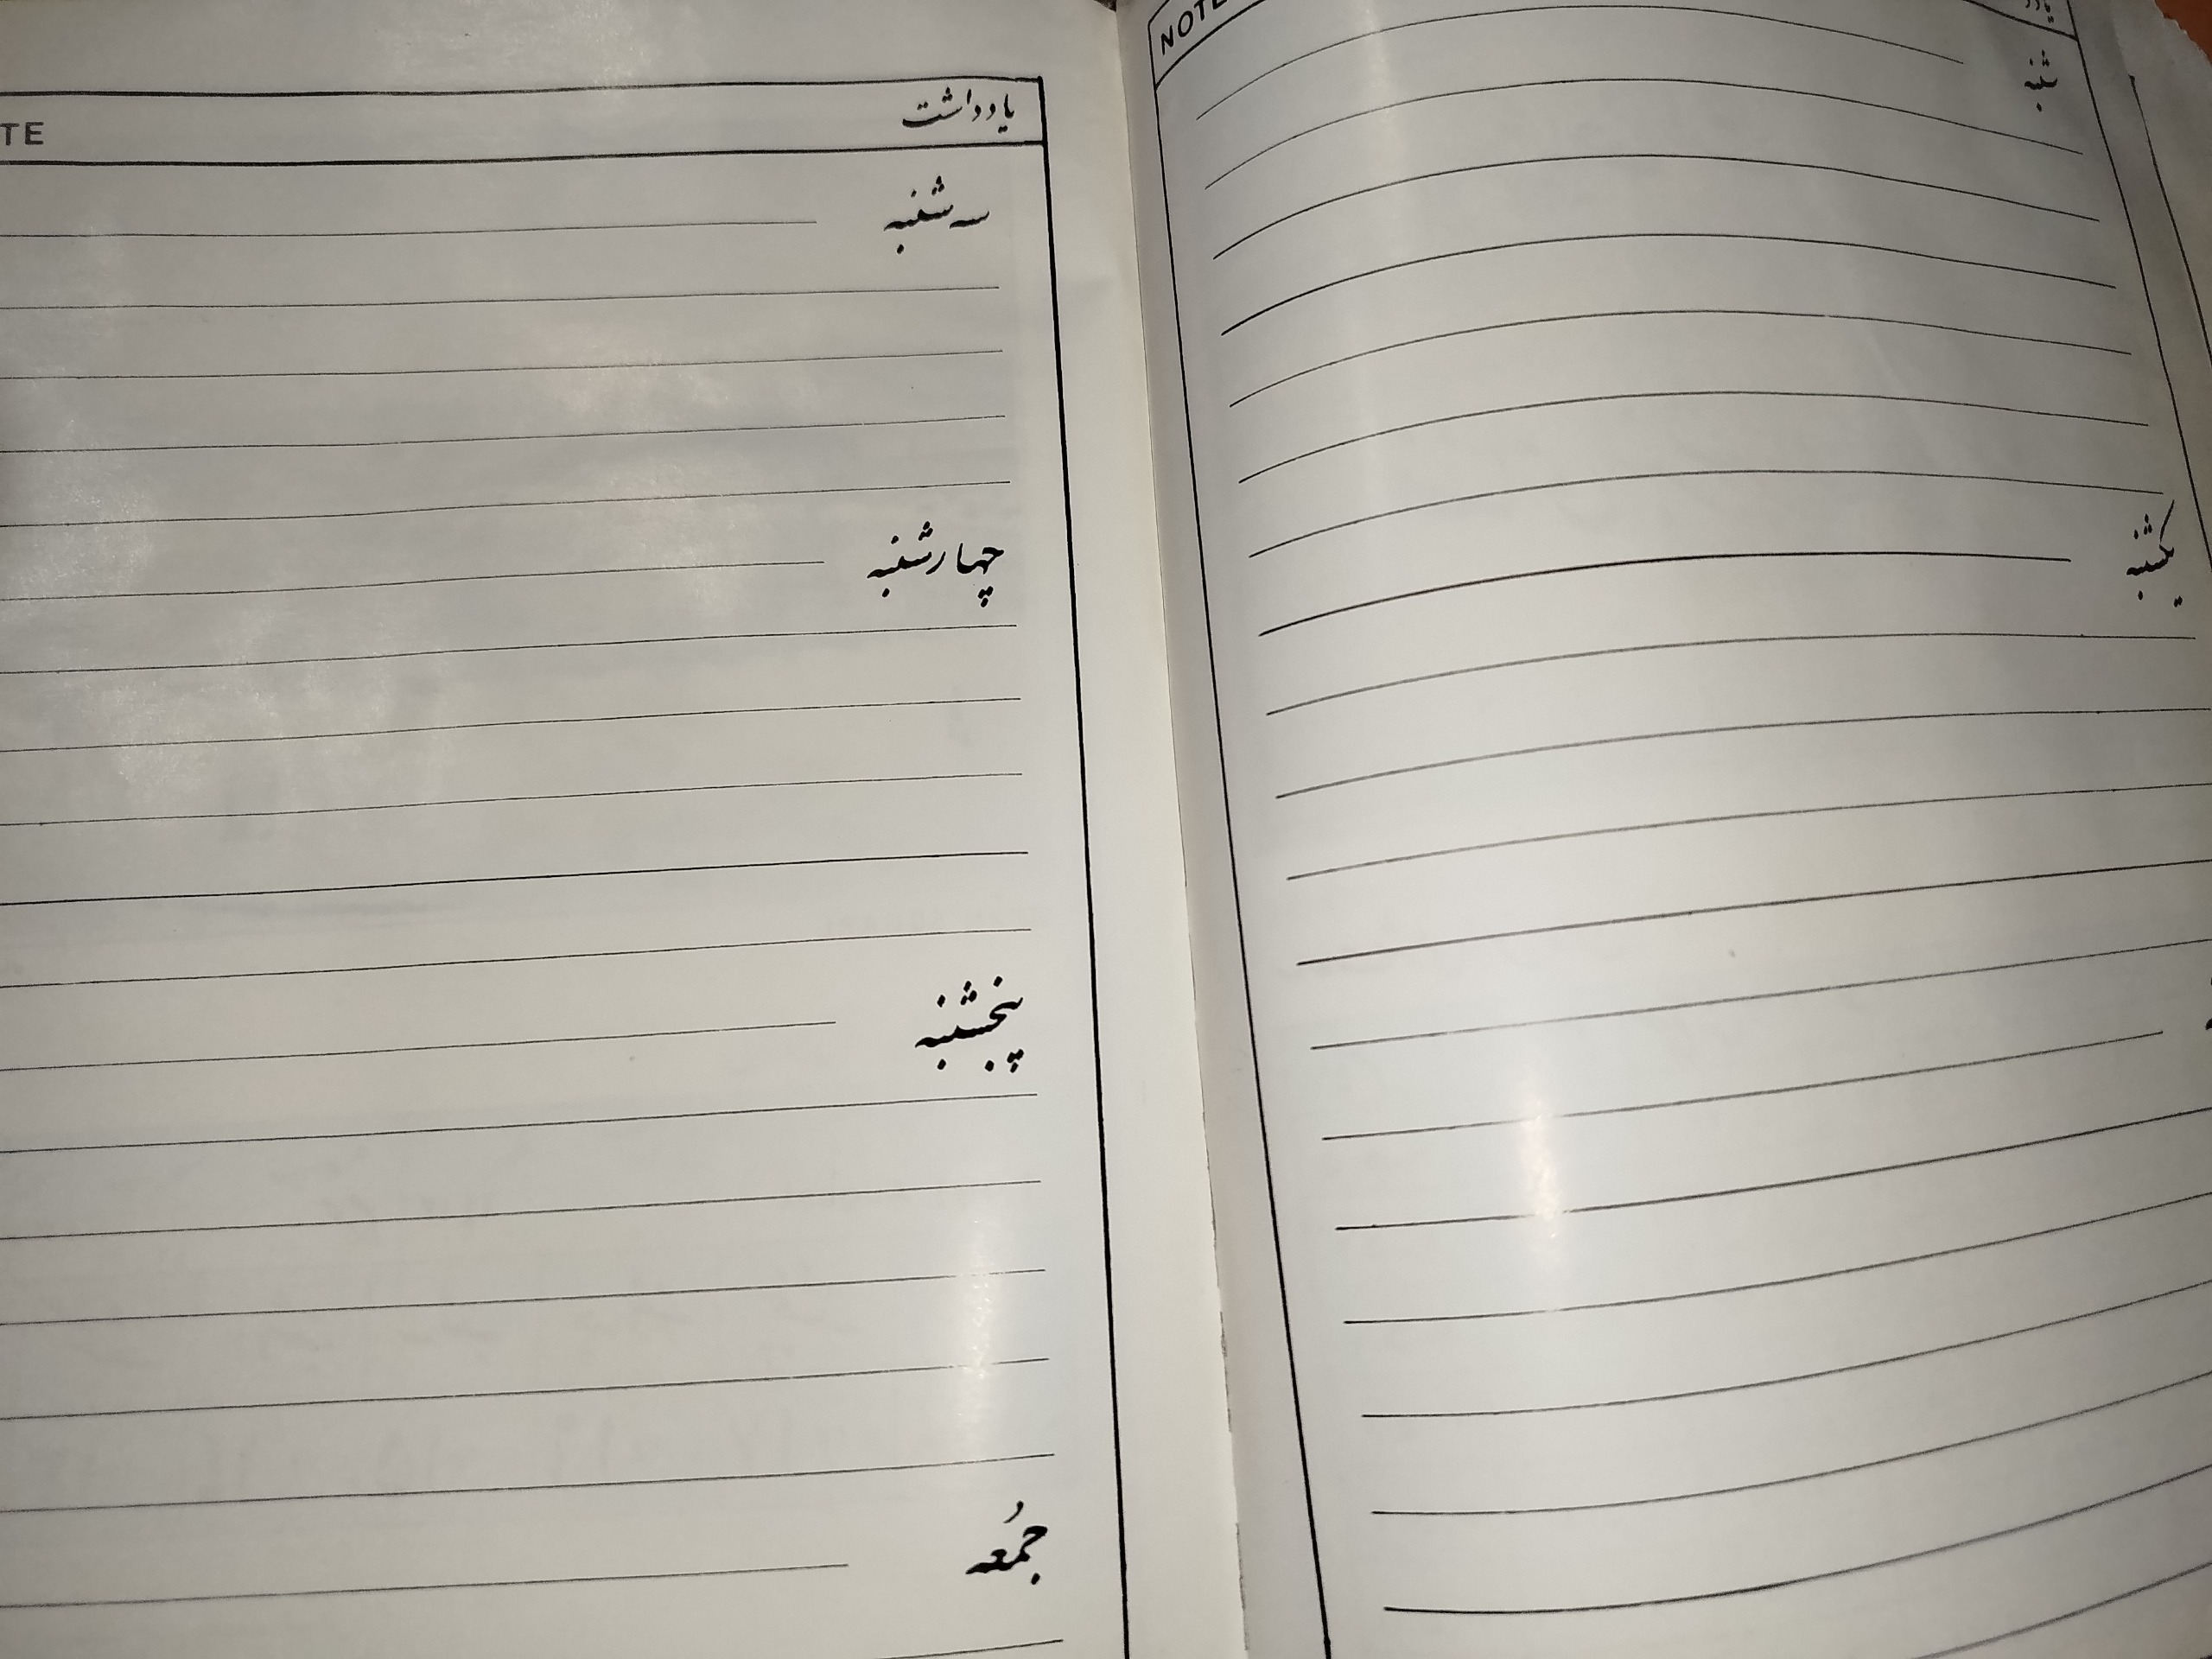 یادداشت
سه شنبه
چهارشنبه
پنجشنبه
جمُعه
NOTE
شنبه
یکشنبه